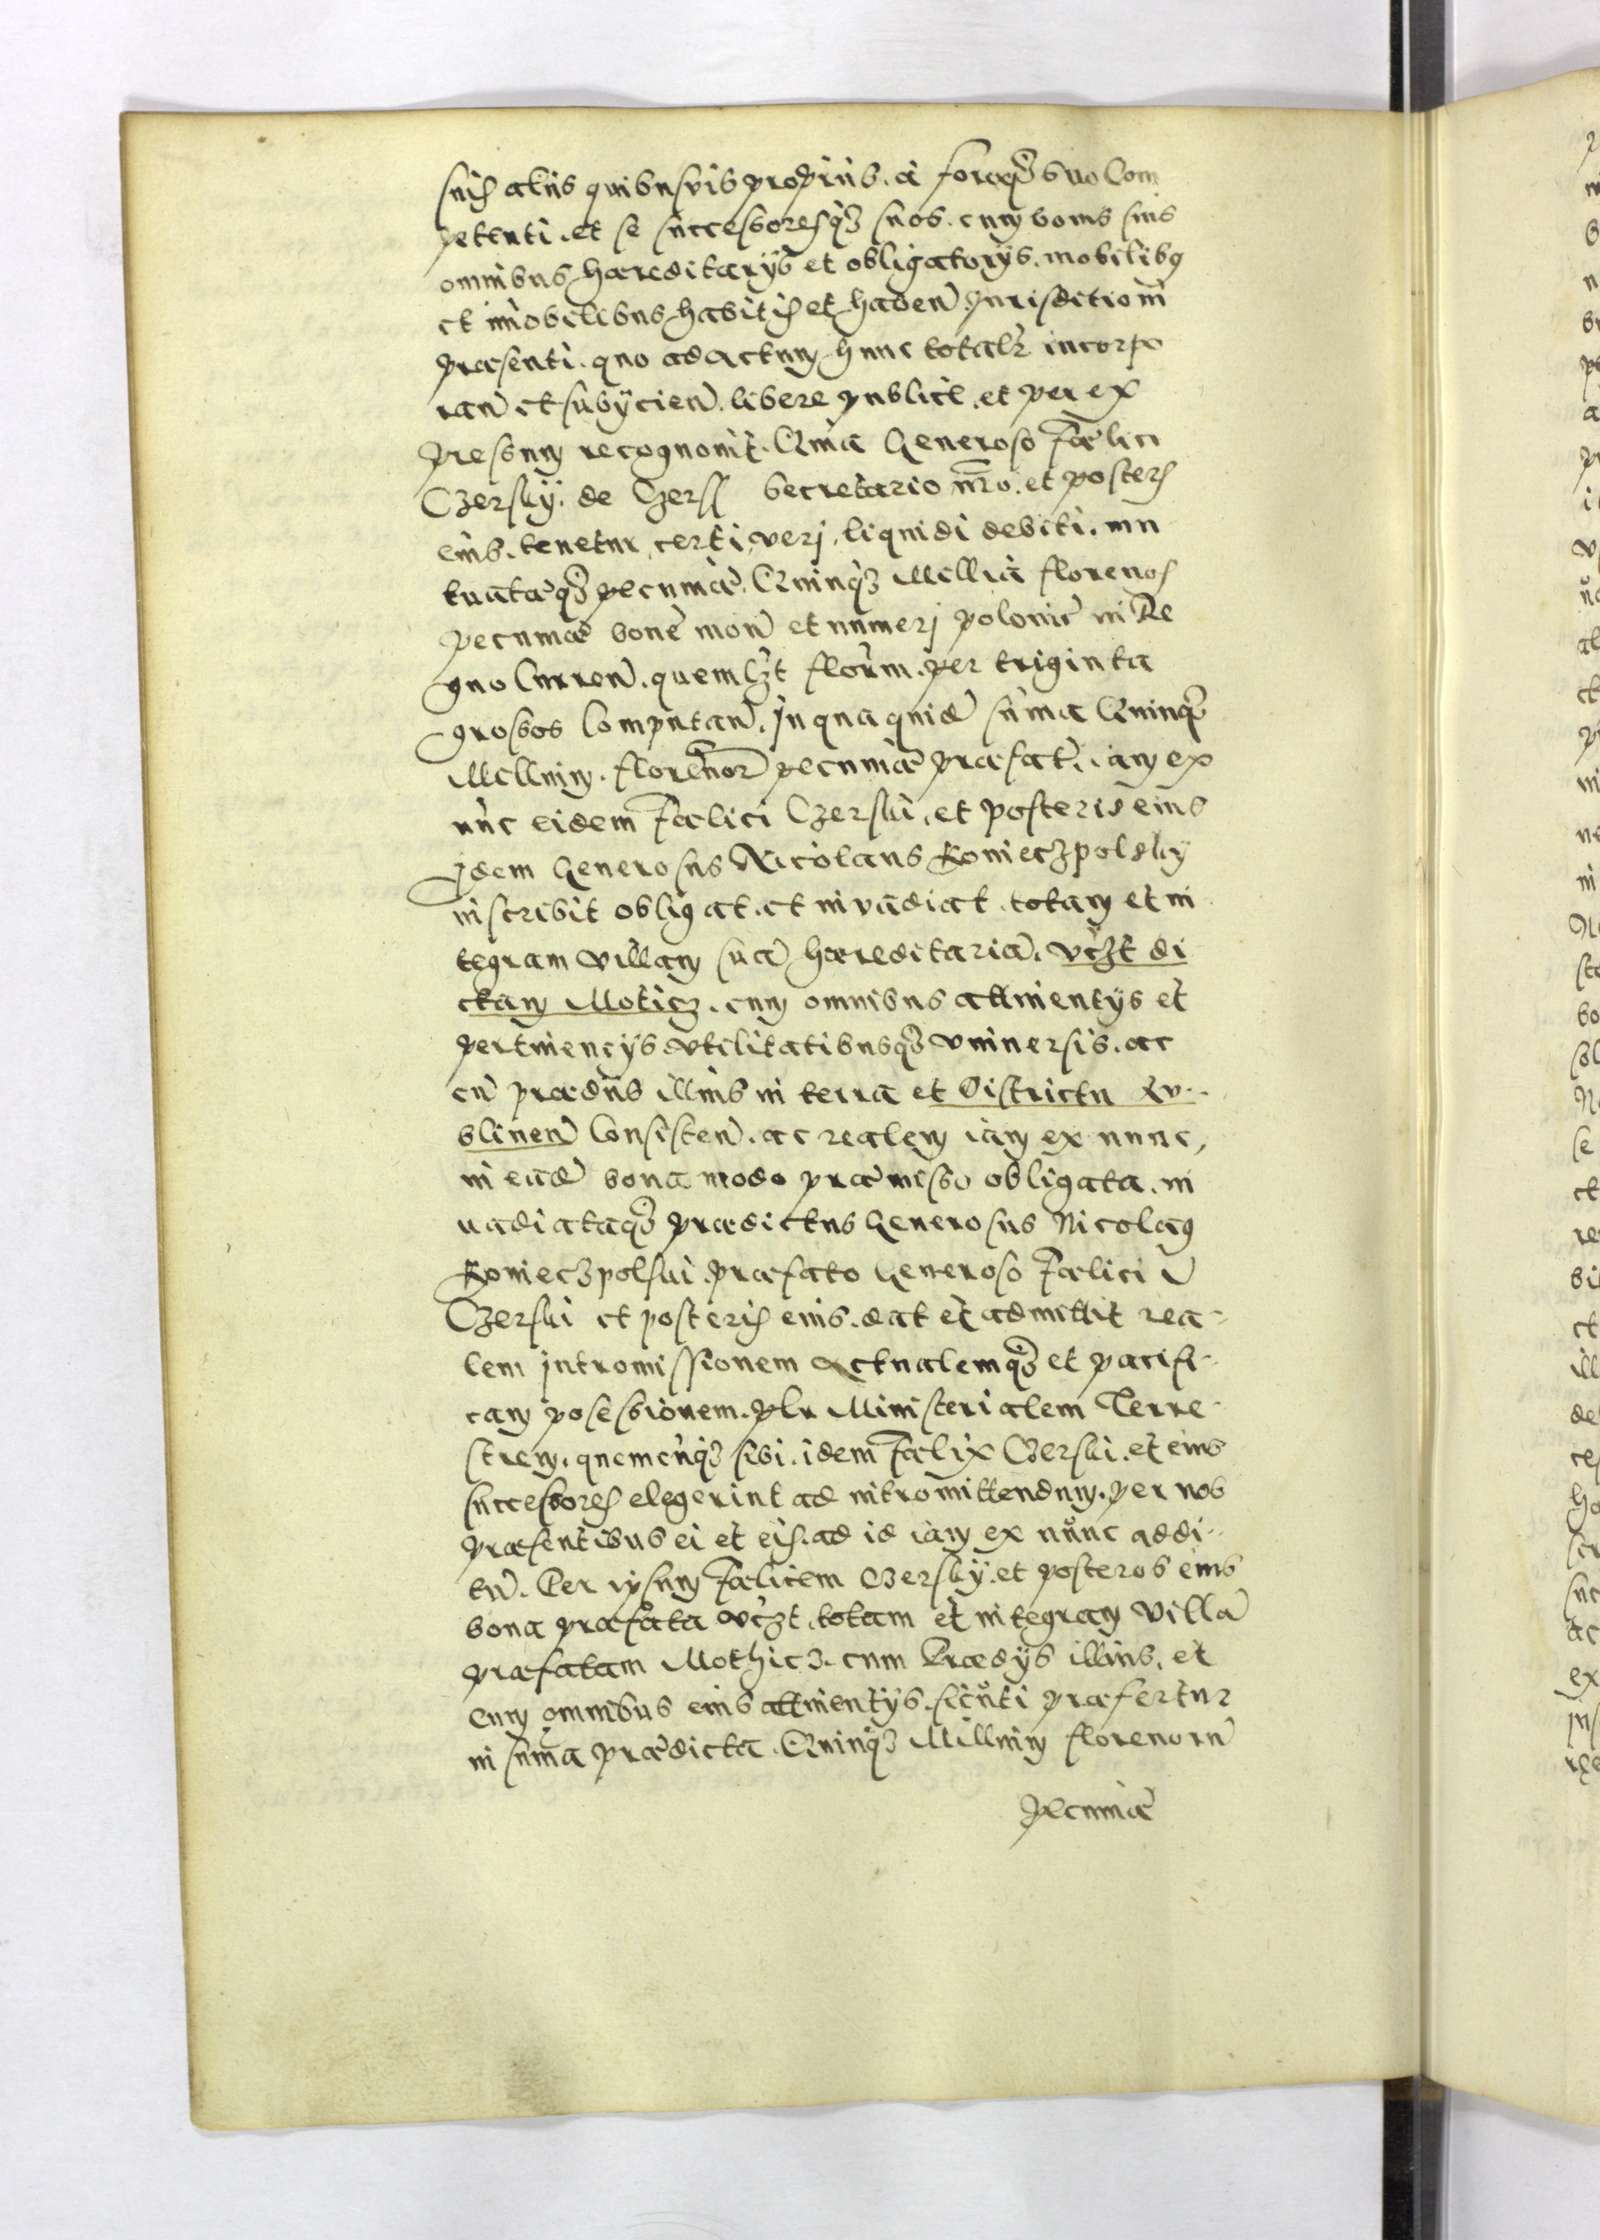 suis aliis quibusvis propriis. a foroq̃ suo Com
petenti. et se successoresq̃ suos. cum bonis suis
omnibus hæreditarÿs et obligatorÿs. mobilibꝰ
et im̃obilibus habitis et haben̄. Jurisdictioni
præsenti. quo ad actum hunc totalr̃ incorpo
ran̄ et subÿcien̄. libere publice. et per ex
pressum recognovit. Quia Generoso Fælici
Czerskÿ. de Czersk Secretario nr̃o. et posteris
eius. tenetur, certi, veri, liquidi debiti. mu
tuatæq̃ pecuniæ. Quinq̃ Millia florenos
pecuniæ bonæ mon̄ et numerj polonic̄ in Re
gno Curren̄. quemlȝt flor̄um. per triginta
grossos Computan̄. Jn qua quidē sum̄a Quinq̃
Millium. florenor̄ pecuniæ præfatæ. iam ex
nunc eidem Fælici Czerski, et posteris eius
Jdem Generosus Nicolaus Konieczpolsky
inscribit obligat. et invadiat. totam et in
tegram villam suā hæreditariā. vcȝt di
ctam Moticz. cum omnibus attinentÿs et
pertinencÿs utilitatibusq̃ universis. ac
cū prædiis illius in terra et Districtu Lu-
blinen̄ Consisten̄. ac realem iam ex nunc,
in eadē bona modo præmisso obligata. in
vadiataq̃ prædictus Generosus Nicolaꝰ
Konieczpolski. præfato Generoso Fælici
Czerski et posteris eius. dat et admittit rea-
lem Jntromissionem Actualemq̃ et pacifi-
cam possessionem. per Ministerialem Terre-
strem. quemcunq̃ sibi. idem Fælix Czerski. et eius
successores elegerint ad intromittendum. per nos
præsentibus ei et eis. ad id iam ex nunc addi-
tū. Per ipsum Fælicem Czerskÿ. et posteros eius
bona præfata vcȝt. totam et integram Villā
præfatam Mothicz. cum Prædÿs illius, et
cum omnibus eius attinentÿs. sicuti præfertur
in sum̄a prædicta. Quinq̃ Millium florenorū
pecuniæ